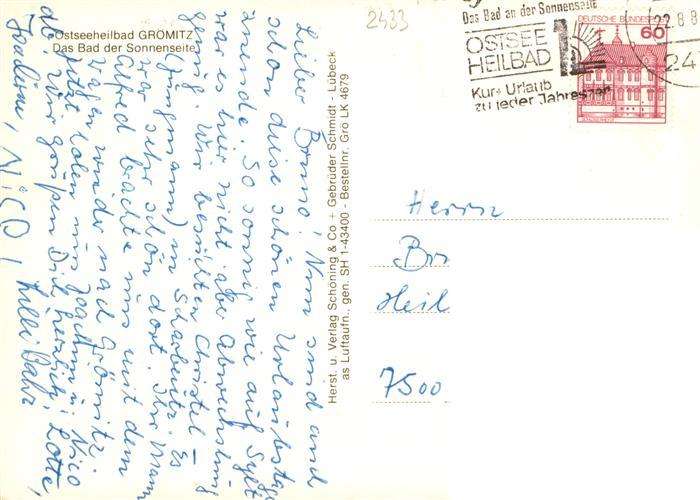 Ostseeheilbad GRÖMITZ
Das Bad der Sonnenseite
Lieber Bruno! Nun sind auch
schon diese schönen Urlaubstage
zuende. So sonnig wie auf Sylt
war es hier nicht aber Abwechslung
genug. Wir besuchten Christel
(Jungmann) in Scharbeutz. Es
war sehr schön dort. Ihr Mann
Alfred brachte uns mit dem
Wagen wieder nach Grömitz.
Jetzt holen uns Joachim u. Nico
ab. Wir grüßen Dich herzlich! Lotte,
Joachim, Nico!
Herst. u. Verlag Schöning & Co + Gebrüder Schmidt - Lübeck
as Luftaufn., gen. SH 1-43400 - Bestellnr. Grö LK 4679
2433
Das Bad an der Sonnenseite
OSTSEE
HEILBAD
Kur + Urlaub
zu jeder Jahreszeit
DEUTSCHE BUNDESPOST
60
22.8.8
24
Herrn
Br
Heil
7500